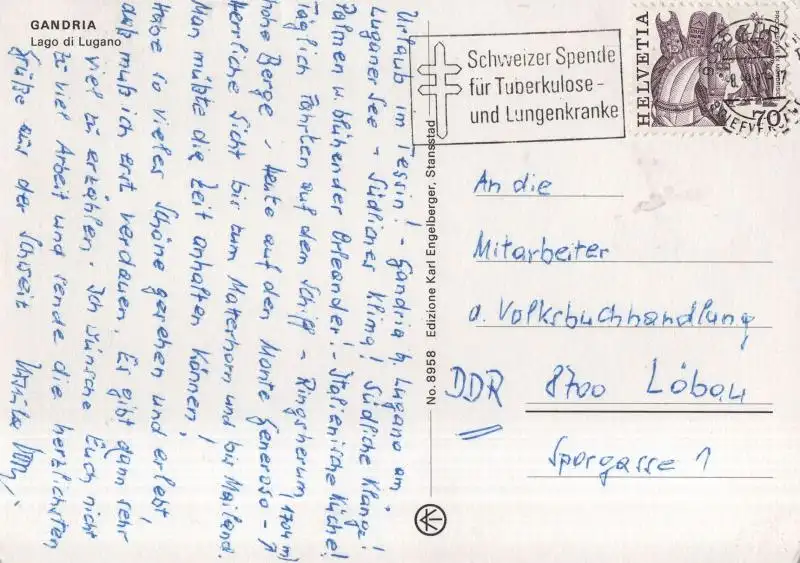 GANDRIA
Lago di Lugano
Urlaub im Tessin! - Gandria b. Lugano am
Luganer See - Südliches Klima! Südliche Klänge!
Palmen u. blühender Oleander! - Italienische Küche!
Täglich Fahrten auf dem Schiff - Ringsherum
hohe Berge, heute auf den Monte Generoso - 1704 m
Herrliche Sicht bis zum Matterhorn und bis Mailand.
Man müßte die Zeit anhalten können!
Habe so vieles Schöne gesehen und erlebt,
das muß ich erst verdauen. Es gibt dann sehr
viel zu erzählen. Ich wünsche Euch nicht
zu viel Arbeit und sende die herzlichsten
Grüße aus der Schweiz Ursula
No. 8958 Edizione Karl Engelberger, Stansstad
Schweizer Spende
für Tuberkulose-
und Lungenkranke
HELVETIA
70
BRIEFVER
An die
Mitarbeiter
d. Volksbuchhandlung
DDR 8700 Löbau
Sporgasse 1